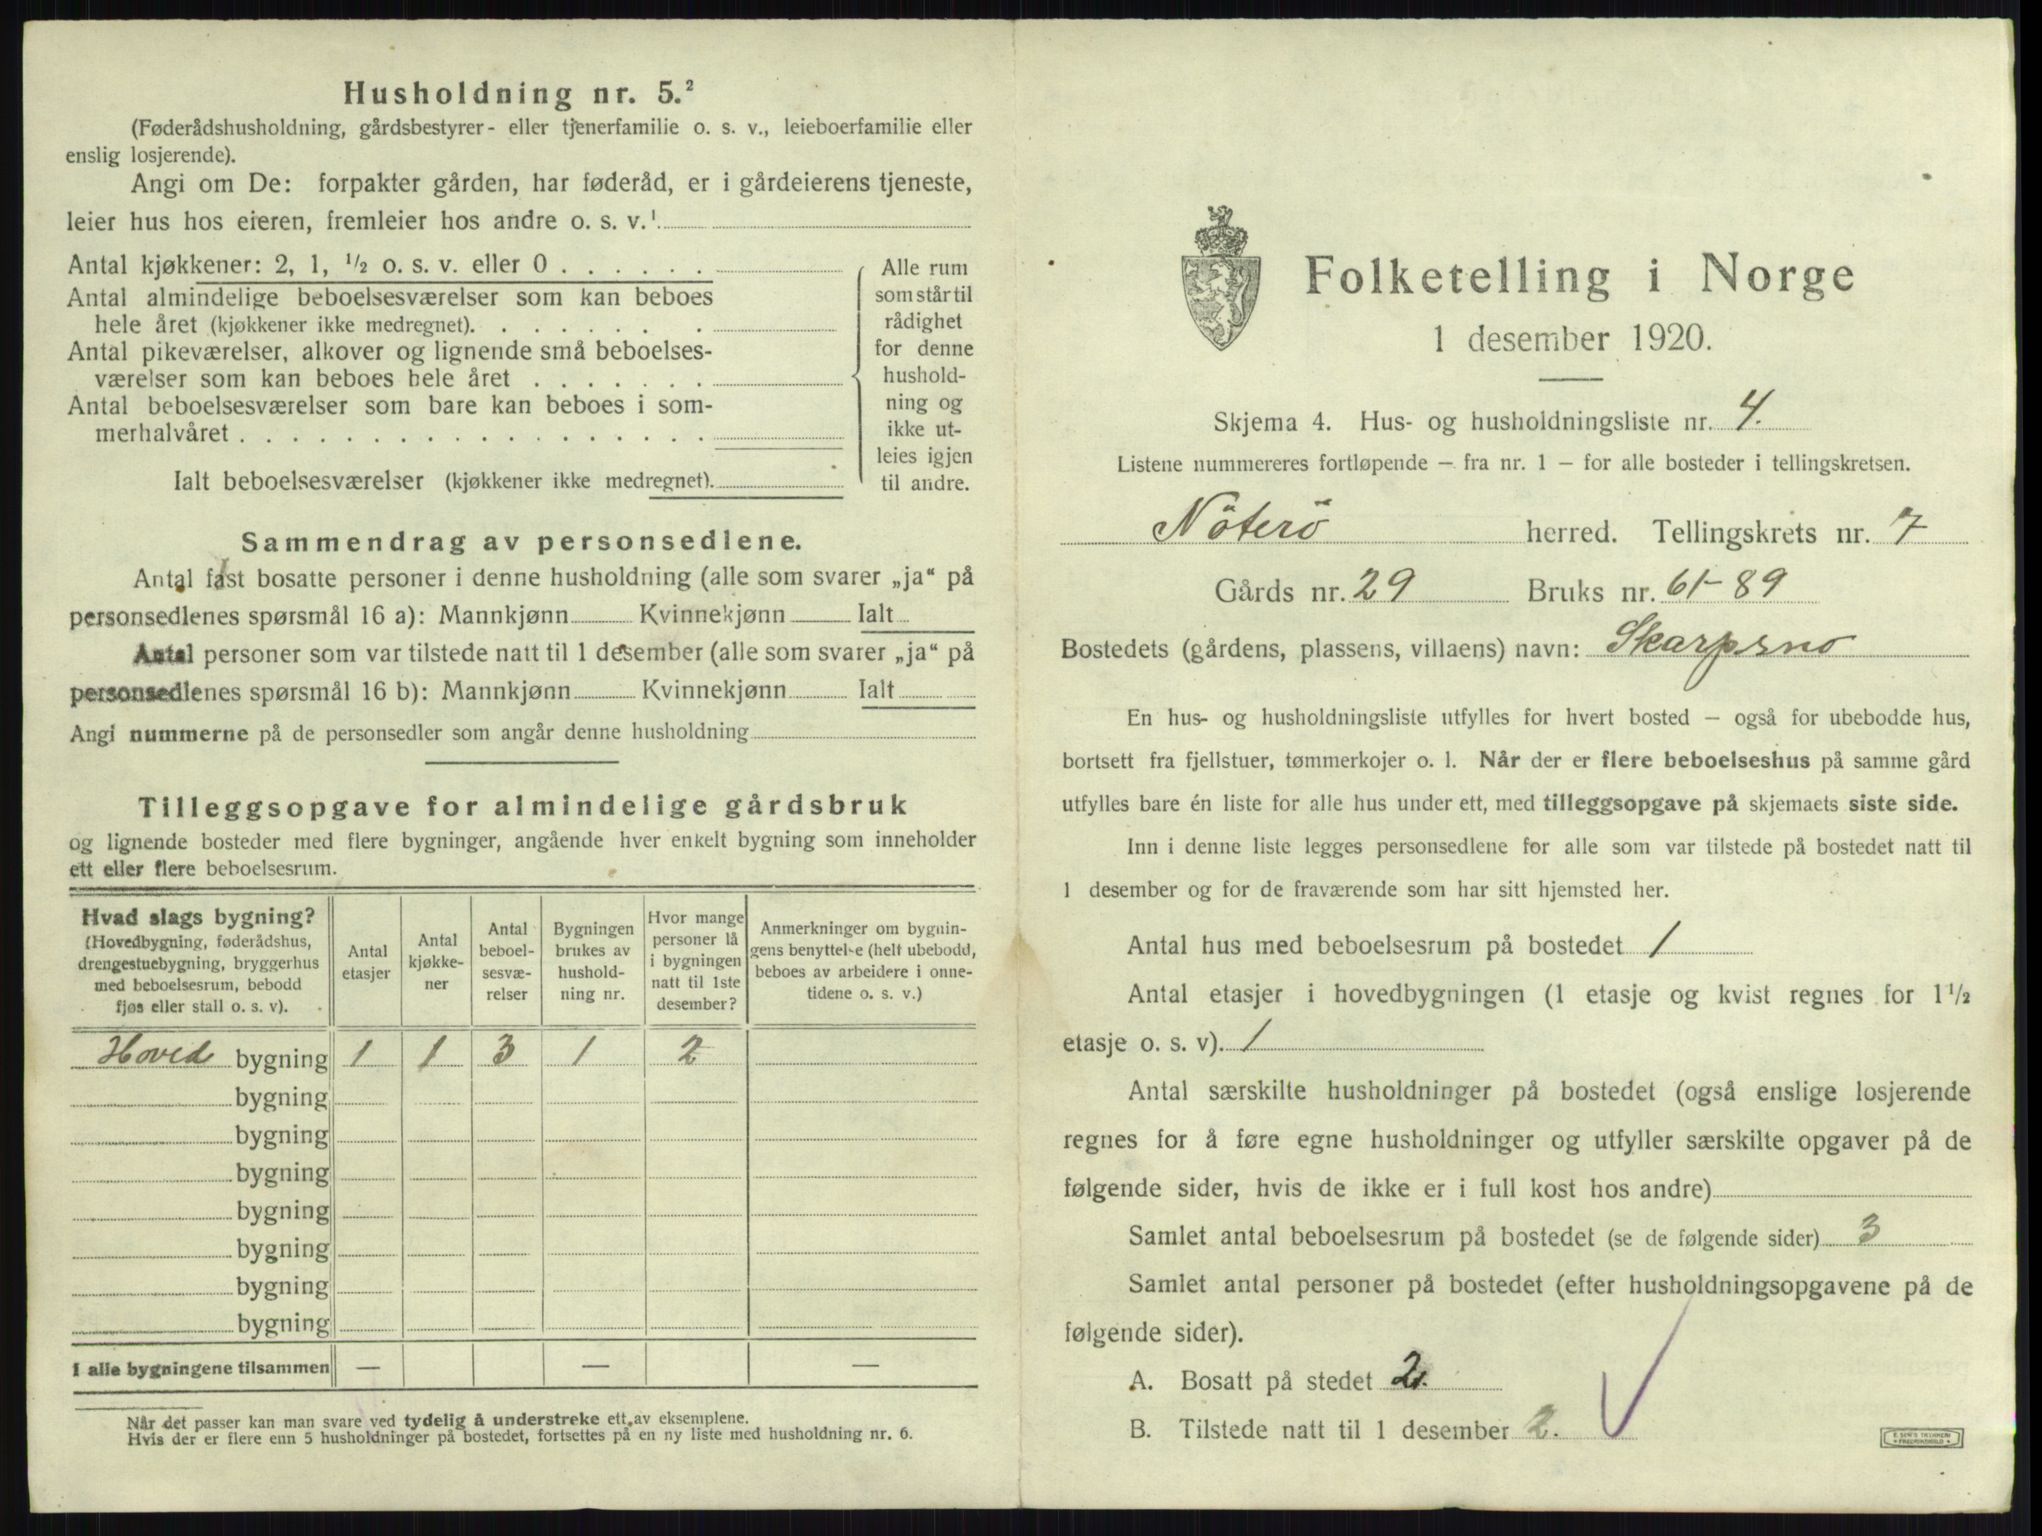 Husholdning nr. 5.²
(Føderådshusholdning, gårdsbestyrer- eller tjenerfamilie o. s. v., leieboerfamilie eller
enslig losjerende).
Angi om De: forpakter gården, har føderåd, er i gårdeierens tjeneste,
leier hus hos eieren, fremleier hos andre o. s. v.¹
Antal kjøkkener: 2, 1, ½ o. s. v. eller 0
Antal almindelige beboelsesværelser som kan beboes
hele året (kjøkkener ikke medregnet).
Antal pikeværelser, alkover og lignende små beboelses-
værelser som kan beboes hele året
Antal beboelsesværelser som bare kan beboes i som-
merhalvåret
Ialt beboelsesværelser (kjøkkener ikke medregnet).
Alle rum
som står til
rådighet
for denne
hushold-
ning og
ikke ut-
leies igjen
til andre.
Sammendrag av personsedlene.
Antal fast bosatte personer i denne husholdning (alle som svarer „ja“ på
personsedlenes spørsmål 16 a): Mannkjønn Kvinnekjønn Ialt
Antal personer som var tilstede natt til 1 desember (alle som svarer „ja“ på
personsedlenes spørsmål 16 b): Mannkjønn Kvinnekjønn Ialt
Angi nummerne på de personsedler som angår denne husholdning
Tilleggsopgave for almindelige gårdsbruk
og lignende bosteder med flere bygninger, angående hver enkelt bygning som inneholder
ett eller flere beboelsesrum.
Hvad slags bygning?
(Hovedbygning, føderådshus,
drengestuebygning, bryggerhus
med beboelsesrum, bebodd
fjøs eller stall o. s. v).
Antal
etasjer
Antal
kjøkke-
ner
Antal
beboel-
sesvæ-
relser
Bygningen
brukes av
hushold-
ning nr.
Hvor mange
personer lå
i bygningen
natt til 1ste
desember?
Anmerkninger om bygnin-
gens benyttelse (helt ubebodd,
beboes av arbeidere i onne-
tidene o. s. v.)
Hoved bygning 1 1 3 1 2
bygning
bygning
bygning
bygning
bygning
bygning
bygning
I alle bygningene tilsammen — — —
Når det passer kan man svare ved tydelig å understreke ett av eksemplene.
Hvis der er flere enn 5 husholdninger på bostedet, fortsettes på en ny liste med husholdning nr. 6.
Folketelling i Norge
1 desember 1920.
Skjema 4. Hus- og husholdningsliste nr. 4.
Listene nummereres fortløpende — fra nr. 1 — for alle bosteder i tellingskretsen.
Nöterö herred. Tellingskrets nr. 7
Gårds nr. 29 Bruks nr. 61-89
Bostedets (gårdens, plassens, villaens) navn: Skarpsno
En hus- og husholdningsliste utfylles for hvert bosted — også for ubebodde hus,
bortsett fra fjellstuer, tømmerkojer o. l. Når der er flere beboelseshus på samme gård
utfylles bare én liste for alle hus under ett, med tilleggsopgave på skjemaets siste side.
Inn i denne liste legges personsedlene for alle som var tilstede på bostedet natt til
1 desember og for de fraværende som har sitt hjemsted her.
Antal hus med beboelsesrum på bostedet 1
Antal etasjer i hovedbygningen (1 etasje og kvist regnes for 1½
etasje o. s. v). 1
Antal særskilte husholdninger på bostedet (også enslige losjerende
regnes for å føre egne husholdninger og utfyller særskilte opgaver på de
følgende sider, hvis de ikke er i full kost hos andre)
Samlet antal beboelsesrum på bostedet (se de følgende sider) 3
Samlet antal personer på bostedet (efter husholdningsopgavene på de
følgende sider).
A. Bosatt på stedet 2.
B. Tilstede natt til 1 desember 2.